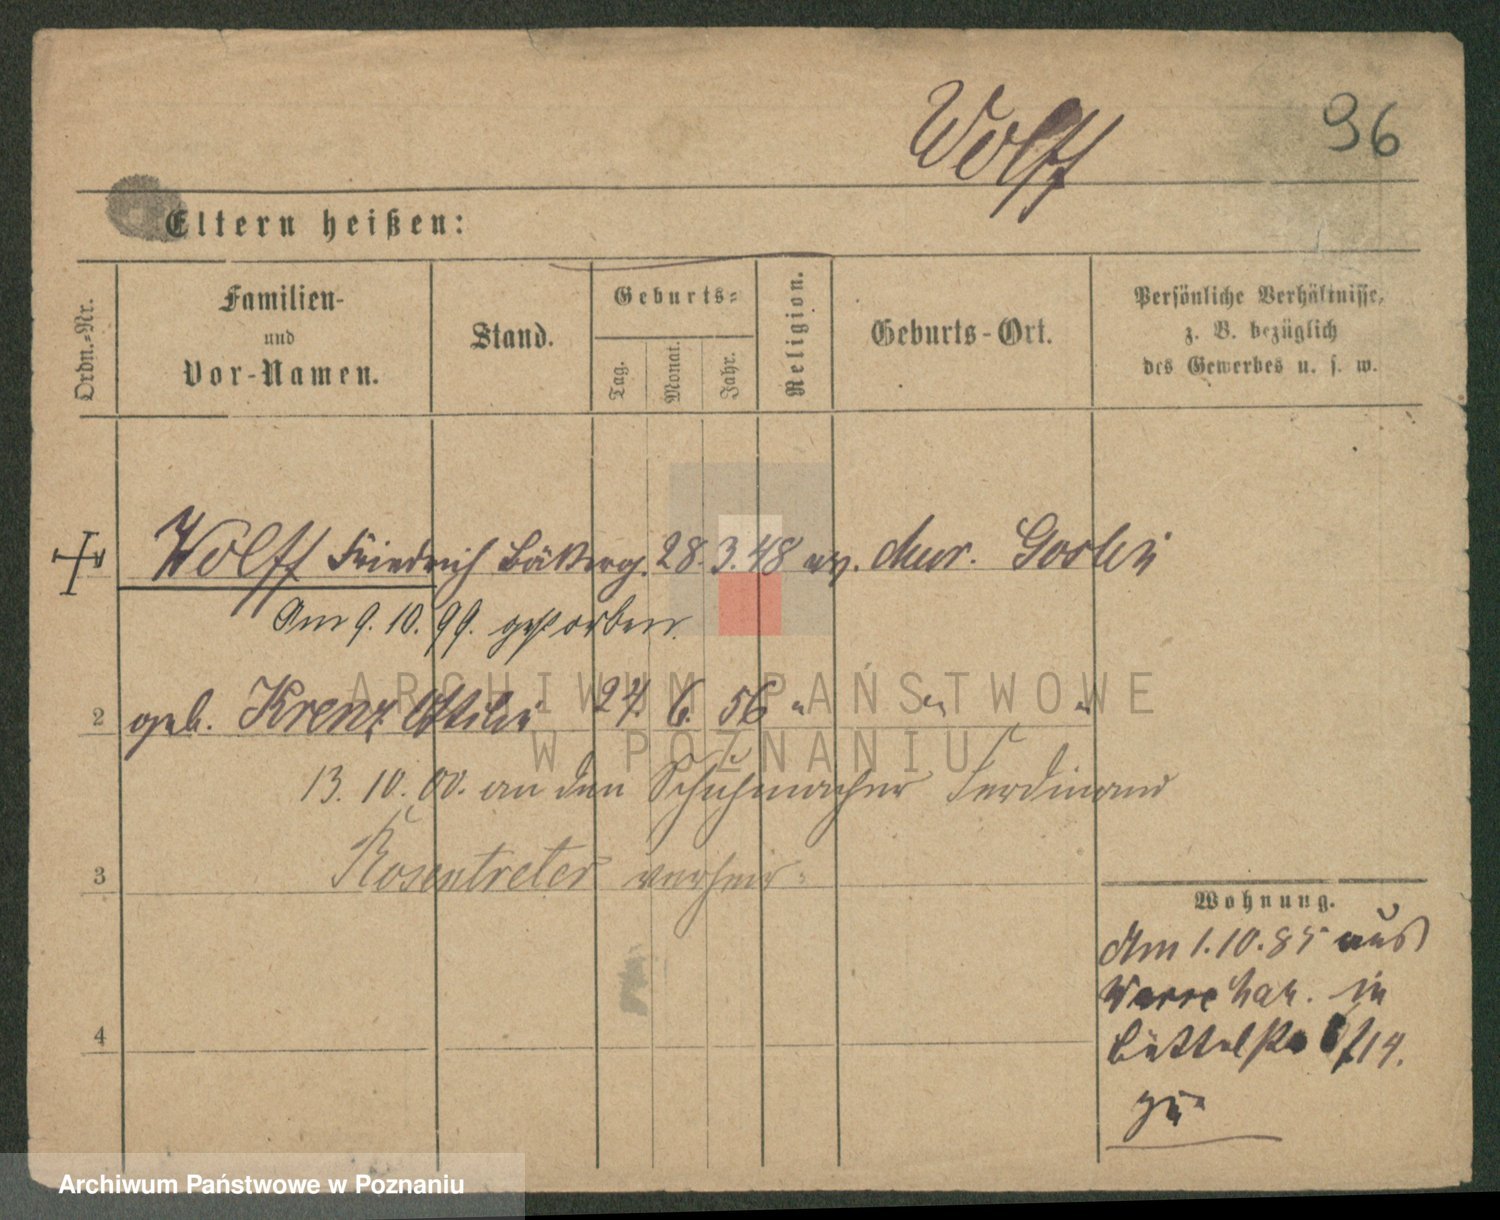 Wolff
96
Eltern heißen:
Ordn.-Nr.
Familien-
und
Vor-Namen.
Stand.
Geburts-
Tag.
Monat.
Jahr.
Religion.
Geburts-Ort.
Persönliche Verhältnisse,
z. B. bezüglich
des Gewerbes u. s. w.
Wolff Friedrich 28. 3. 48 ev. Mur. Goslin
Am 9. 10. 99. gestorben.
2 geb. Krenz Ottilie 24. 6. 56 " " "
13. 10. 00. an den Schuhmacher Ferdinand
3 Rosentreter verheir.
Wohnung.
Am 1. 10. 85 aus
in
4
14.
zu
ARCHIWUM PAŃSTWOWE
W POZNANIU
Archiwum Państwowe w Poznaniu